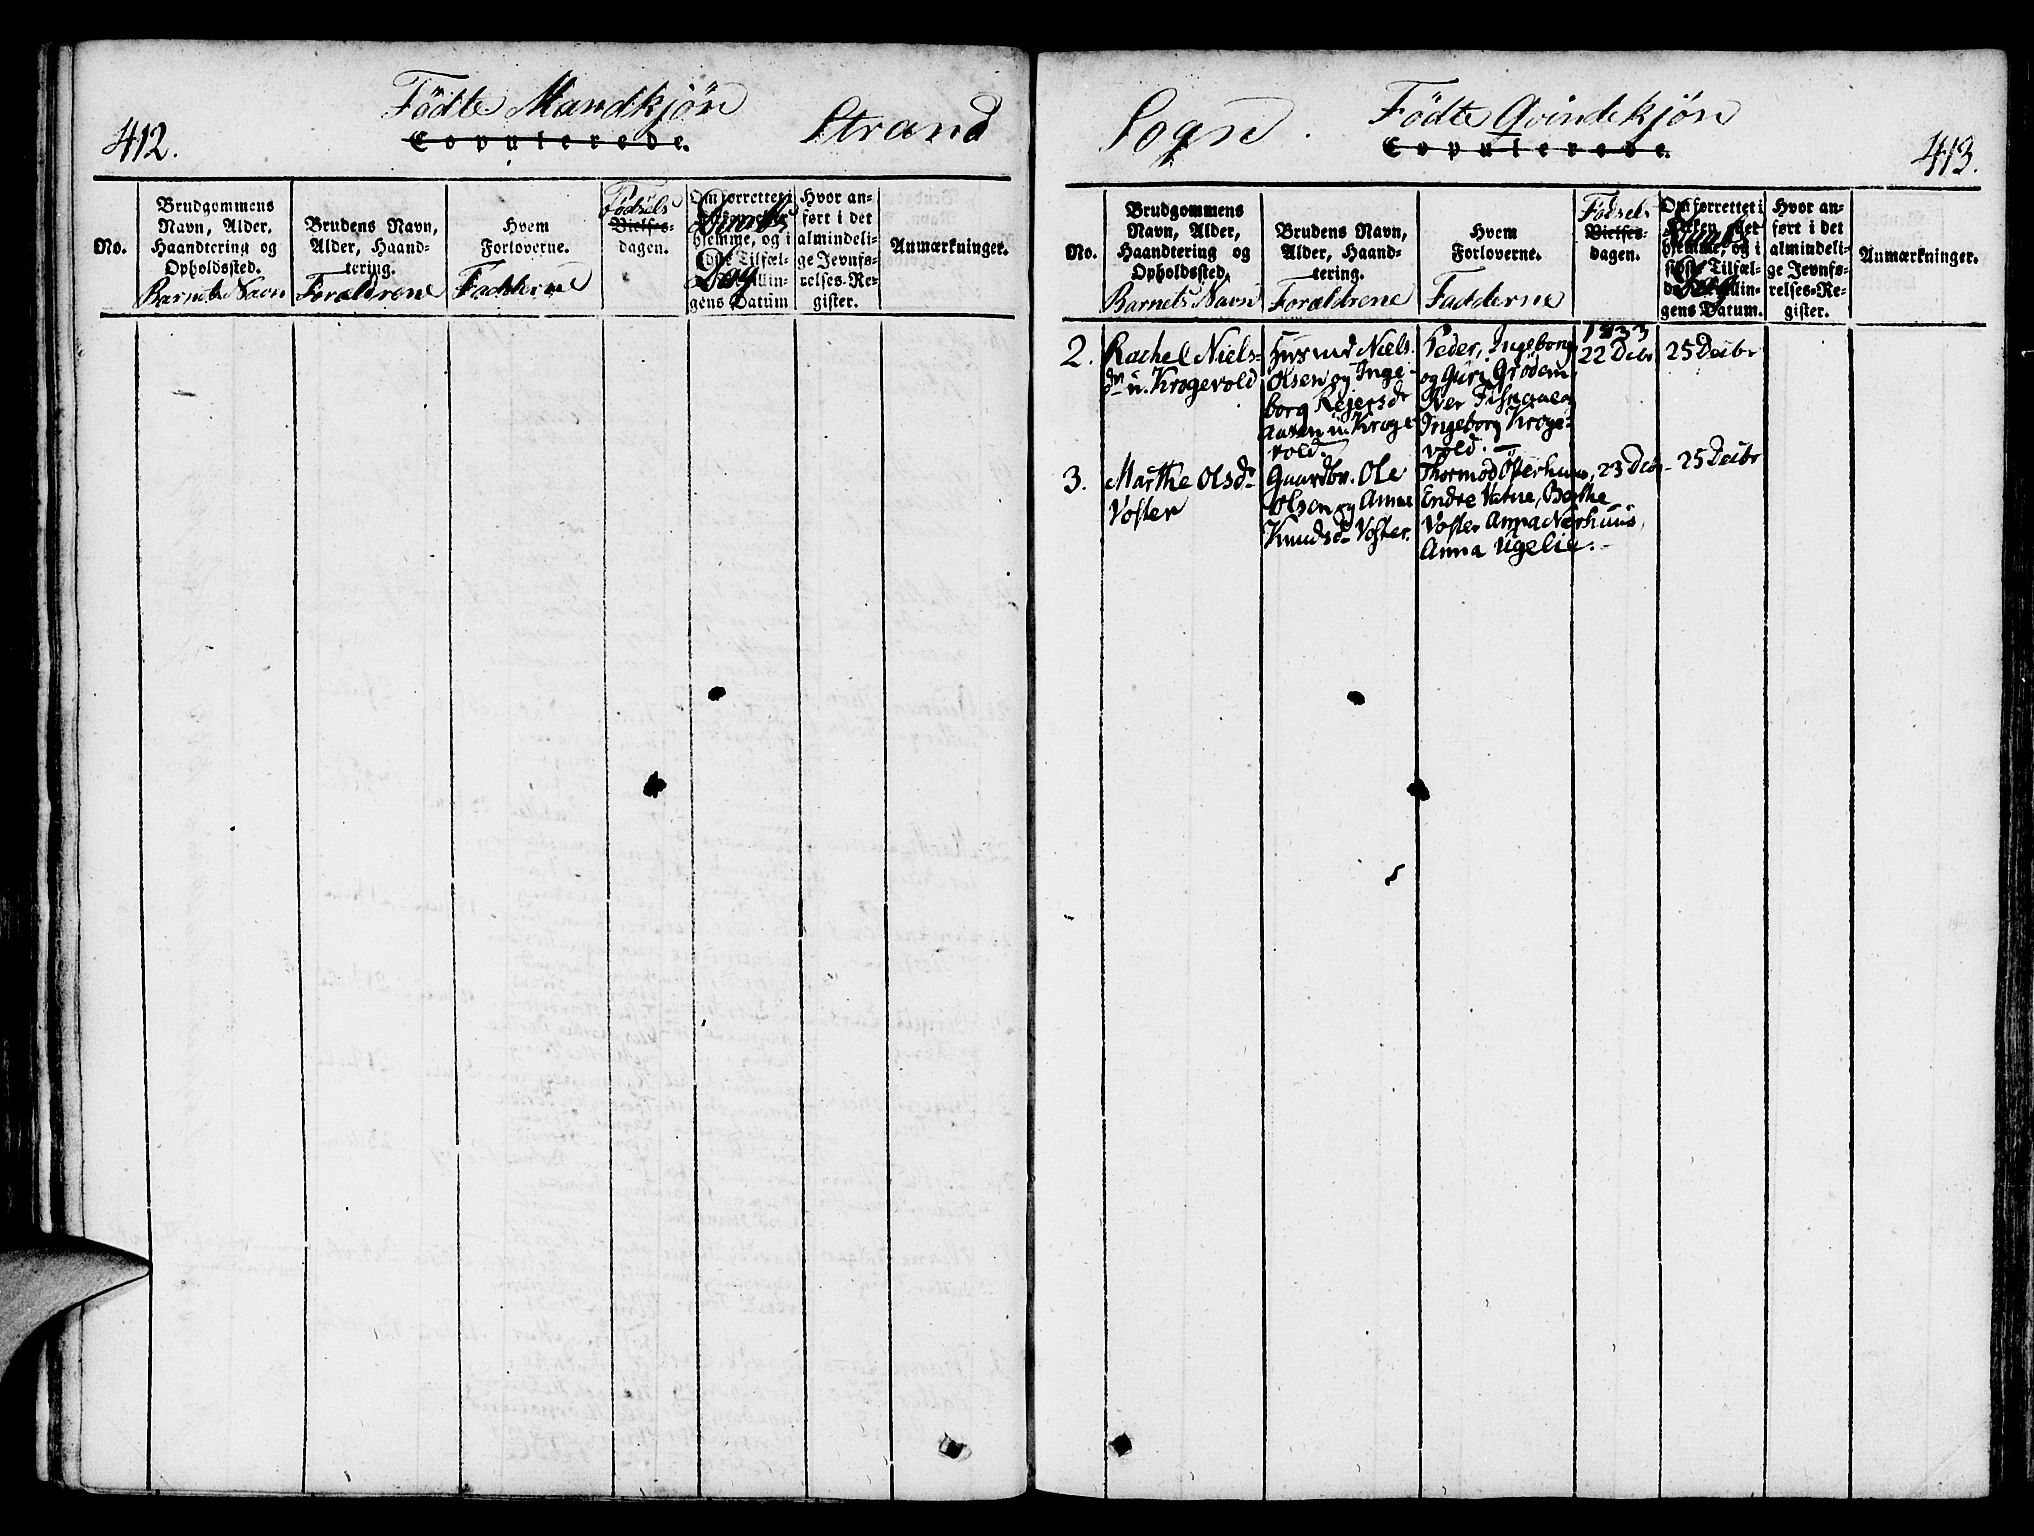 412.
Fødte Mandkjøn
Copulerede.
Strand
No.
Brudgommens
Navn, Alder,
Haandtering og
Opholdssted.
Barnets Navn
Brudens Navn,
Alder, Haand-
tering.
Forældrene
Hvem
Forloverne.
Fadderne
Fødsels
Vielses-
dagen.
Om forrettet i
hjemme, og i
Tilfæl-
gens Datum
Daabs
Dag
Hvor an-
ført i det
almindeli-
ge Jevnfø-
relses-Re-
gister.
Anmærkninger.
Sogn.
Fødte Qvindekjøn
Copulerede.
413.
No.
Brudgommens
Navn, Alder,
Haandtering og
Opholdssted.
Barnets Navn
Brudens Navn,
Alder, Haand-
tering.
Forældrene
Hvem
Forloverne.
Fadderne
Fødsels
Vielses-
dagen.
Om forrettet i
Kirken, eller
hjemme, og i
sidste Tilfæl-
de
gens Datum.
Hvor an-
ført i det
almindeli-
ge Jevnfø-
relses-Re-
gister.
Anmærkninger.
2.
Rachel Niels-
dr u. Krogevold
Huusmd Niels
Olsen og Inge-
borg Rejersdr
u. Kroge-
vold.
Peder, Ingeborg
og Guri Grødem,
Iver
Ingeborg Kroge-
vold.
1833
22 Decbr
25 Decbr
3.
Marthe Olsdr
Voster
Gaardbr. Ole
Olsen og Anna
Knudsdr Voster.
Thormod Østerhuus,
Endre Vatne, Berthe
Voster Anna Nerhuus,
Anna Ugelie.
23 Decbr
25 Decbr